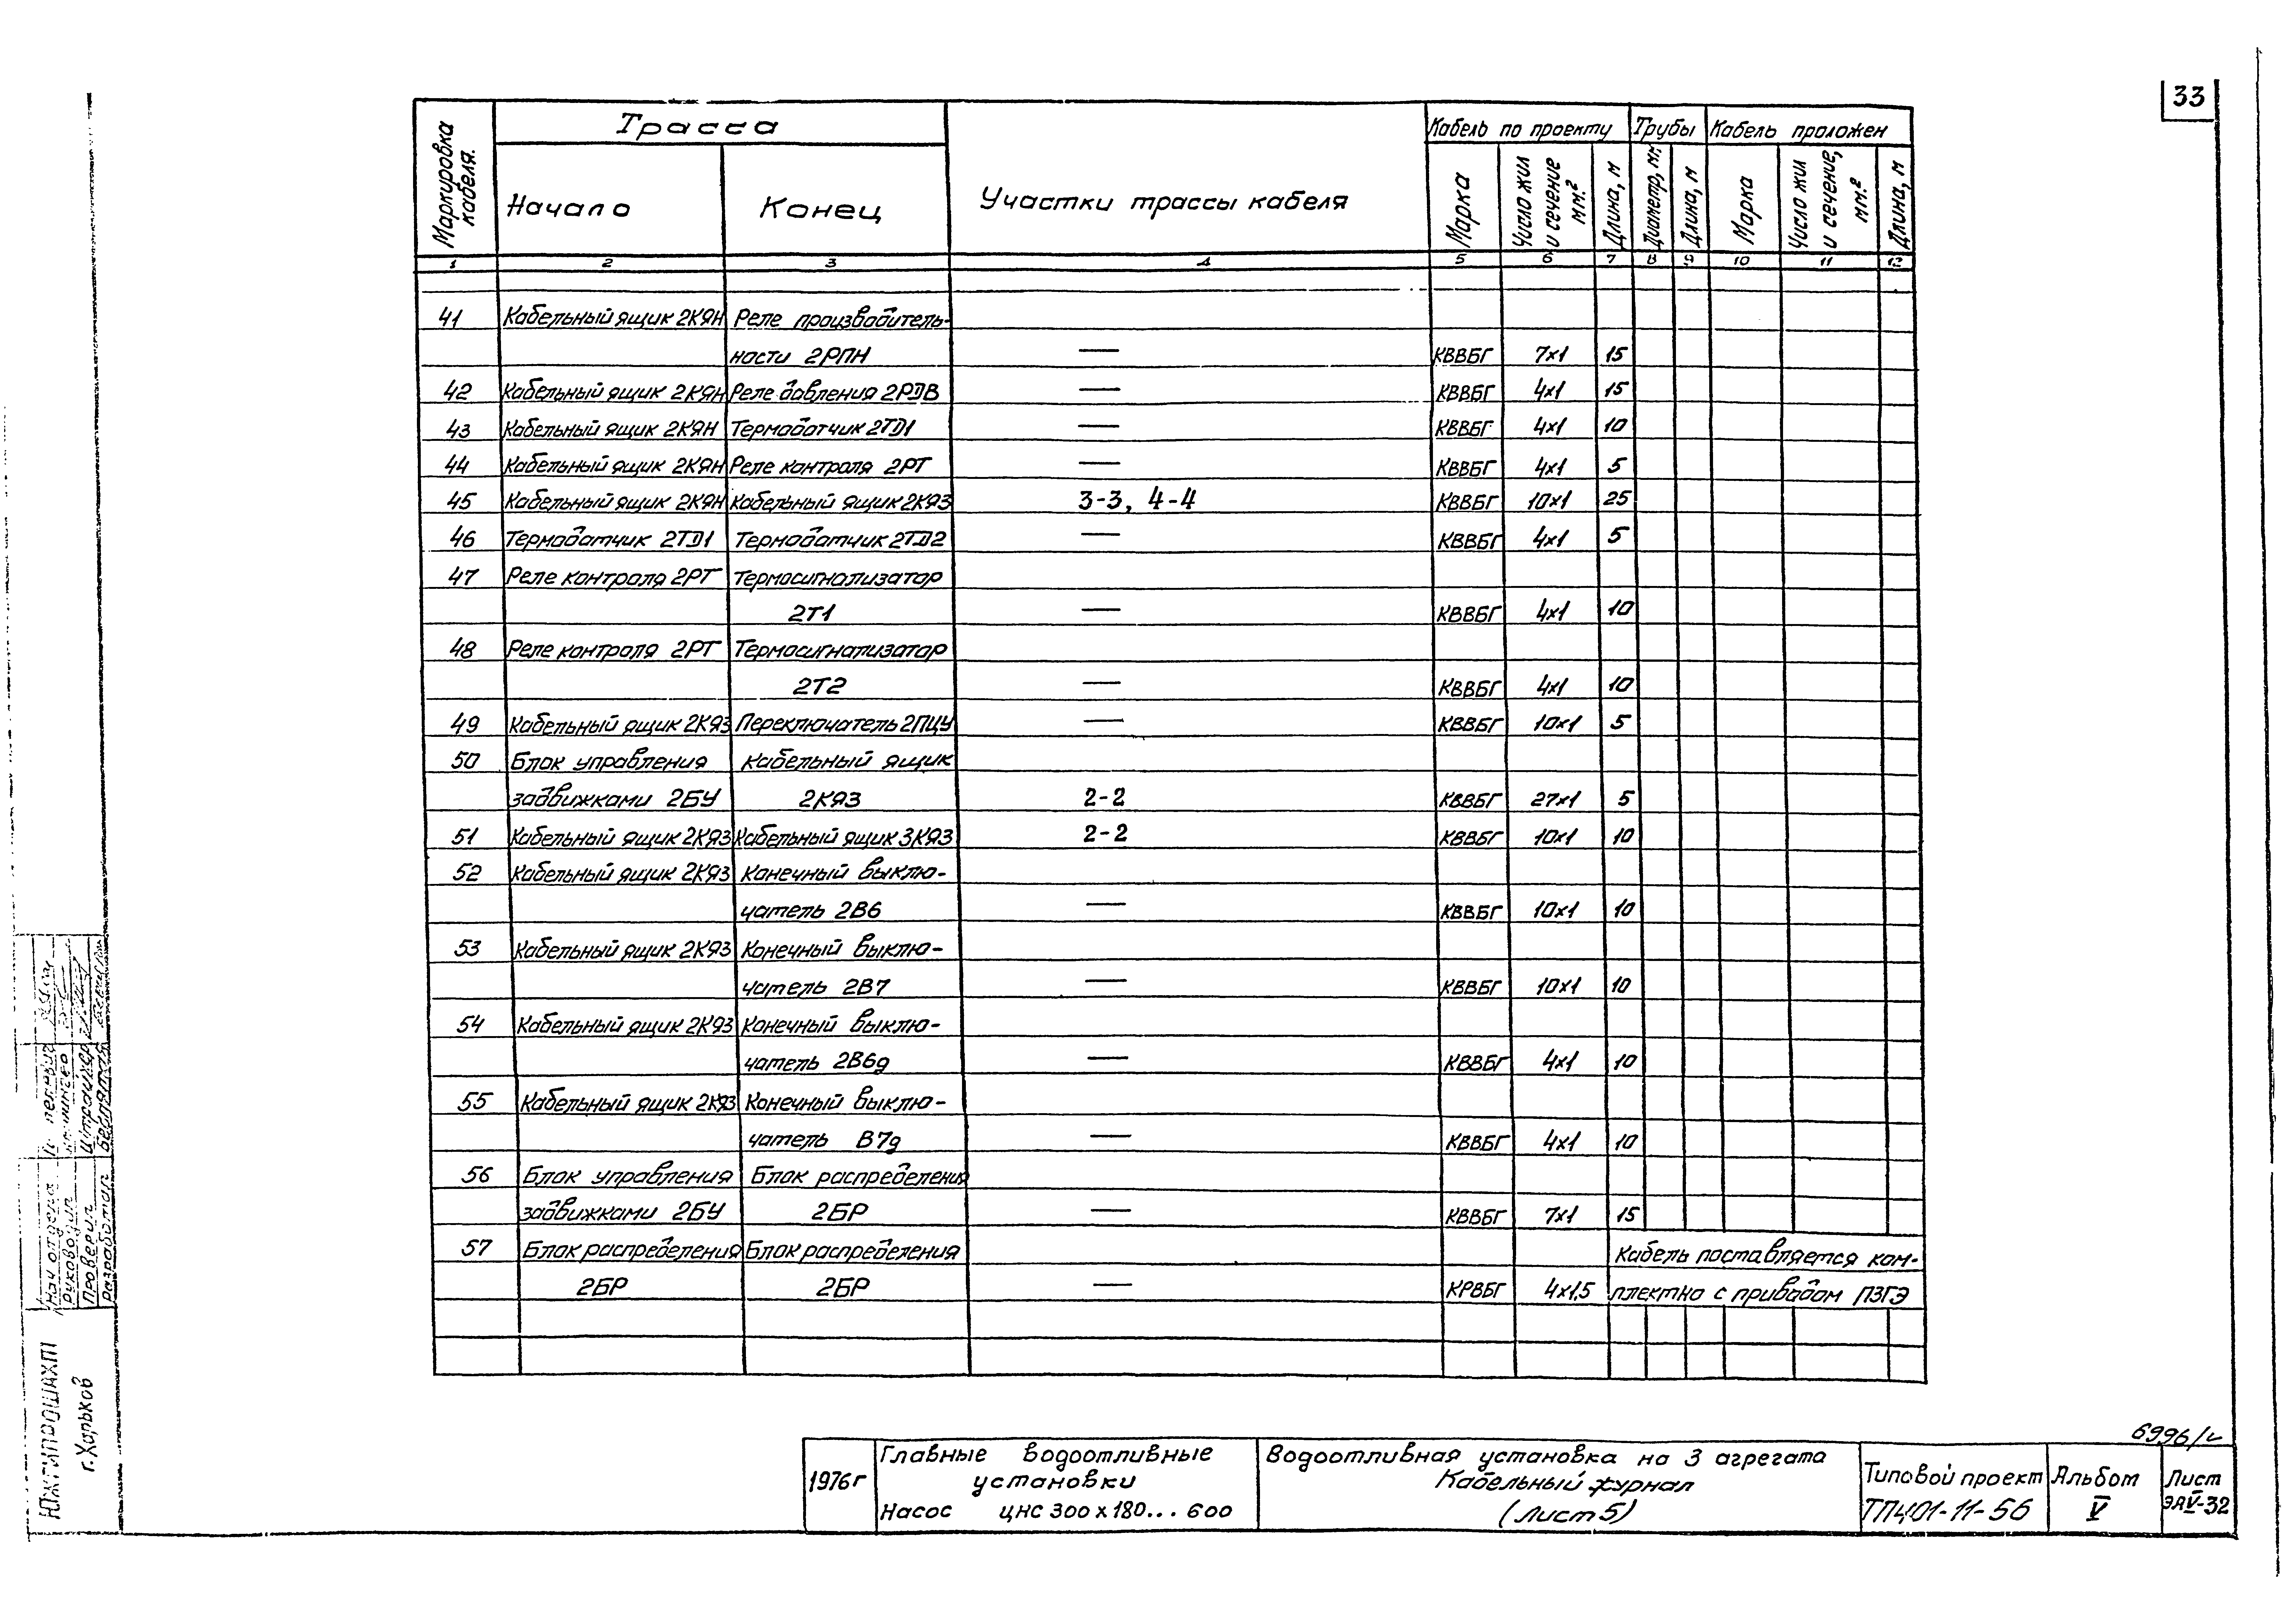 33
Маркировка кабеля.
Трасса
Начало
Конец
Участки трассы кабеля
Кабель по проекту
Марка
Число жил и сечение мм.²
Длина, м
Трубы
Диаметр, мм
Длина, м
Кабель проложен
Марка
Число жил и сечение, мм.²
Длина, м
1 2 3 4 5 6 7 8 9 10 11 12
41 Кабельный ящик 2КЯН Реле производитель-
ности 2РПН — КВВБГ 7х1 15
42 Кабельный ящик 2КЯН Реле давления 2РДВ — КВВБГ 4х1 15
43 Кабельный ящик 2КЯН Термодатчик 2ТД1 — КВВБГ 4х1 10
44 Кабельный ящик 2КЯН Реле контроля 2РТ — КВВБГ 4х1 5
45 Кабельный ящик 2КЯН Кабельный ящик 2КЯЗ 3-3, 4-4 КВВБГ 10х1 25
46 Термодатчик 2ТД1 Термодатчик 2ТД2 — КВВБГ 4х1 5
47 Реле контроля 2РТ Термосигнализатор
2Т1 — КВВБГ 4х1 10
48 Реле контроля 2РТ Термосигнализатор
2Т2 — КВВБГ 4х1 10
49 Кабельный ящик 2КЯЗ Переключатель 2ПЦУ — КВВБГ 10х1 5
50 Блок управления Кабельный ящик
задвижками 2БУ 2КЯЗ 2-2 КВВБГ 27х1 5
51 Кабельный ящик 2КЯЗ Кабельный ящик 3КЯЗ 2-2 КВВБГ 10х1 10
52 Кабельный ящик 2КЯЗ Конечный выклю-
чатель 2В6 — КВВБГ 10х1 10
53 Кабельный ящик 2КЯЗ Конечный выклю-
чатель 2В7 — КВВБГ 10х1 10
54 Кабельный ящик 2КЯЗ Конечный выклю-
чатель 2В6д — КВВБГ 4х1 10
55 Кабельный ящик 2КЯЗ Конечный выклю-
чатель В7д — КВВБГ 4х1 10
56 Блок управления Блок распределения
задвижками 2БУ 2БР — КВВБГ 7х1 15
57 Блок распределения Блок распределения Кабель поставляется ком-
2БР 2БР — КРВБГ 4х1,5 плектно с приводом ПЗГЭ
Нач отдела
Руководил
Проверил Штрайхер
Разработал
Южгипрошахт
г. Харьков
6996/
1976г
Главные водоотливные
установки
Насос ЦНС 300х180...600
Водоотливная установка на 3 агрегата
Кабельный журнал
(Лист 5)
Типовой проект
ТП401-11-56
Альбом
V
Лист
ЭАV-32